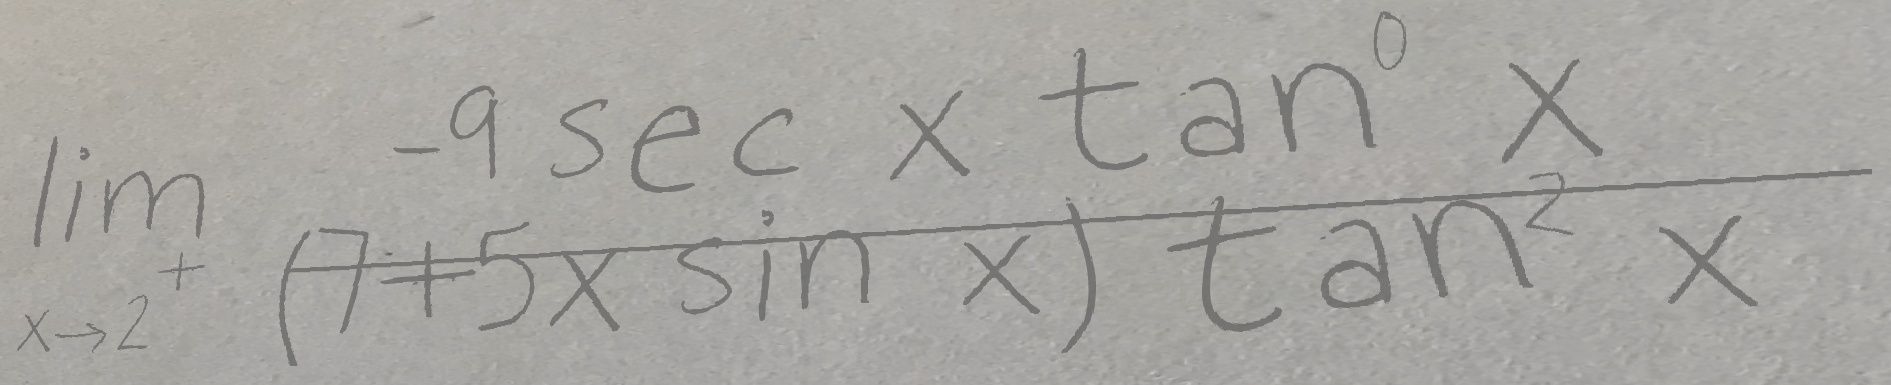 \lim_{x \to 2^+} \frac{-9 \sec x \tan^0 x}{(7+5x \sin x) \tan^2 x}